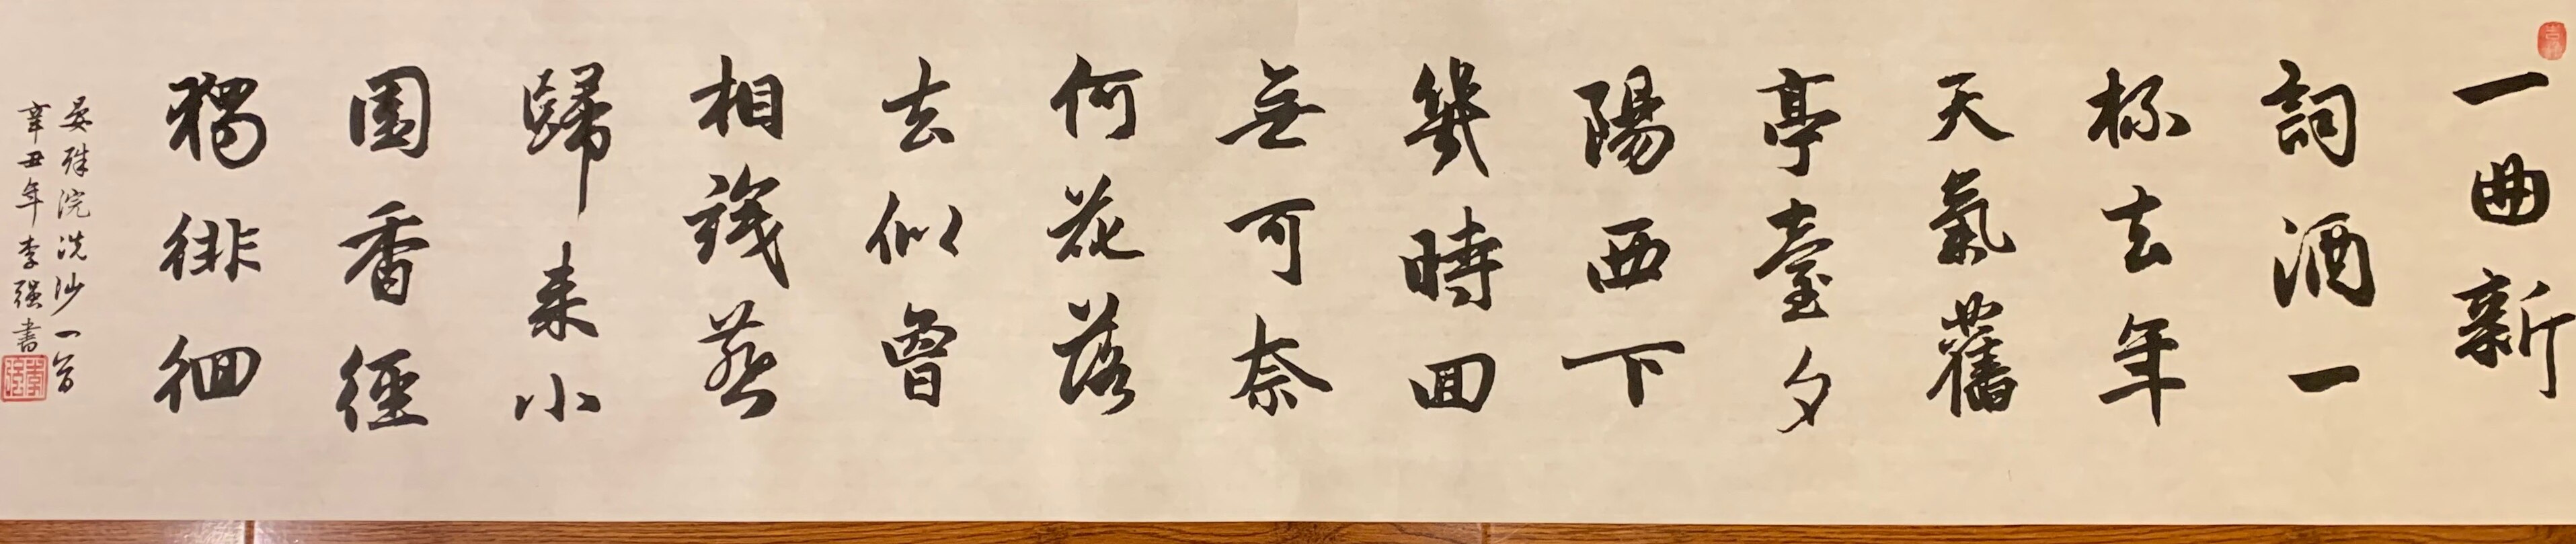 一曲新
詞酒一
杯去年
天氣舊
亭臺夕
陽西下
幾時回
無可奈
何花落
去似曾
相識燕
歸来小
園香徑
獨徘徊
晏殊浣洗沙一首
辛丑年李强書